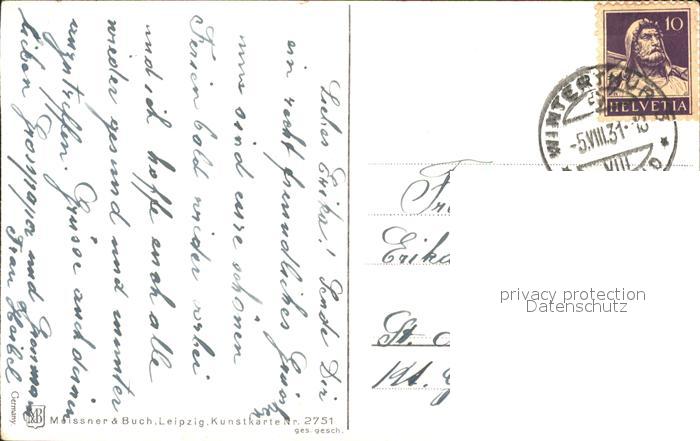 Liebes Erika! Sende Dir
ein recht freundliches Grüssli
nun sind eure schönen
Ferien bald wieder vorbei
und ich hoffe euch alle
wieder gesund und munter
anzutreffen. Grüsse auch deinen
lieben Grosspapa und Grossmama
Frau
10
HELVETIA
WINTERTHUR
-5.VIII.31.
VIII
Fr
Erika
St.
Kt.
privacy protection
Datenschutz
Germany
MB
Meissner & Buch, Leipzig, Kunstkarte Nr. 2751
ges. gesch.